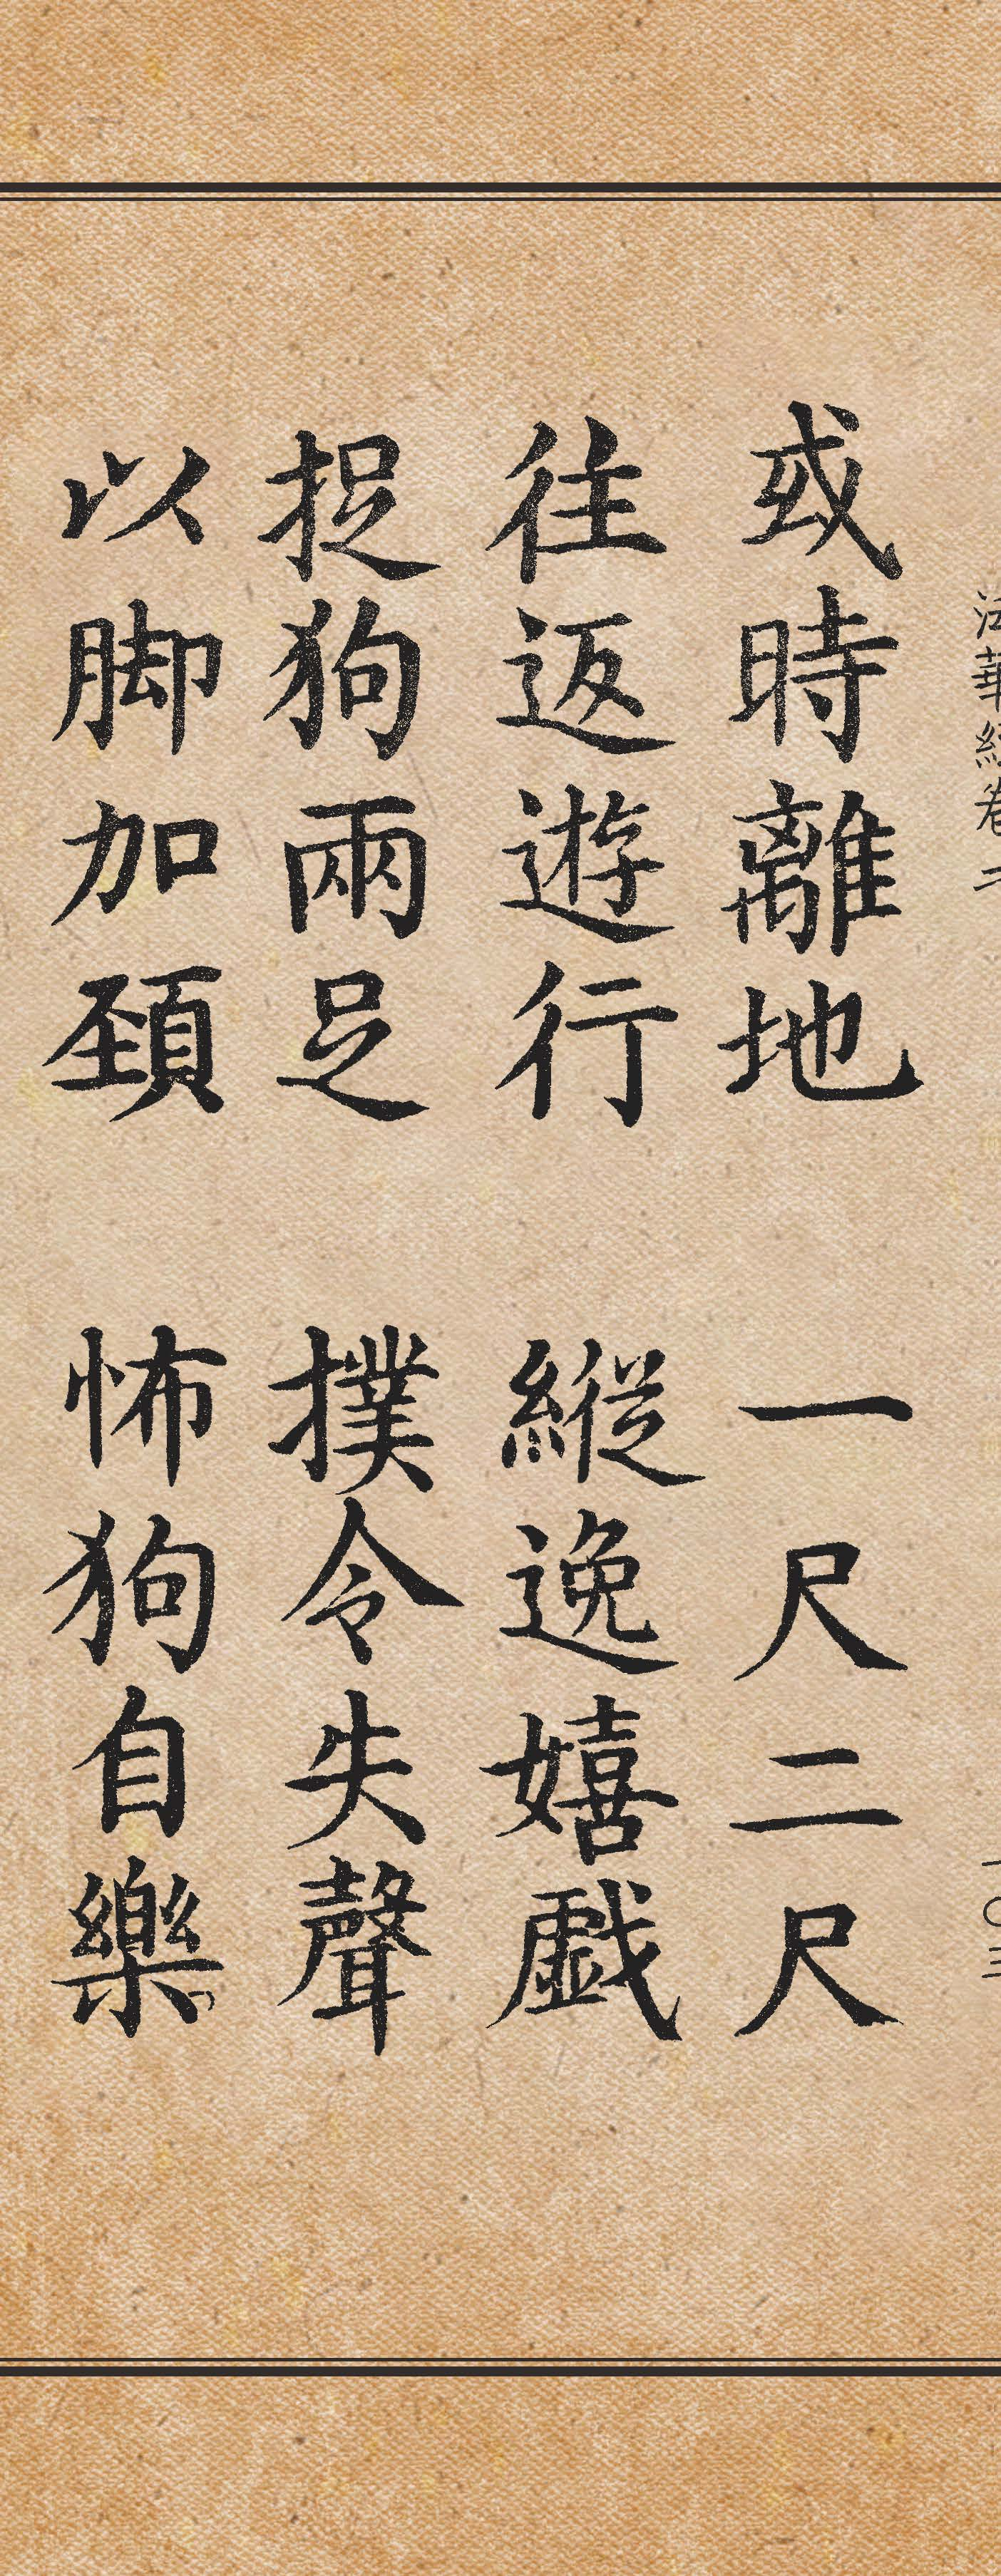 法華經卷二
一〇三
或時離地 一尺二尺
往返遊行 縱逸嬉戲
捉狗兩足 撲令失聲
以脚加頚 怖狗自樂